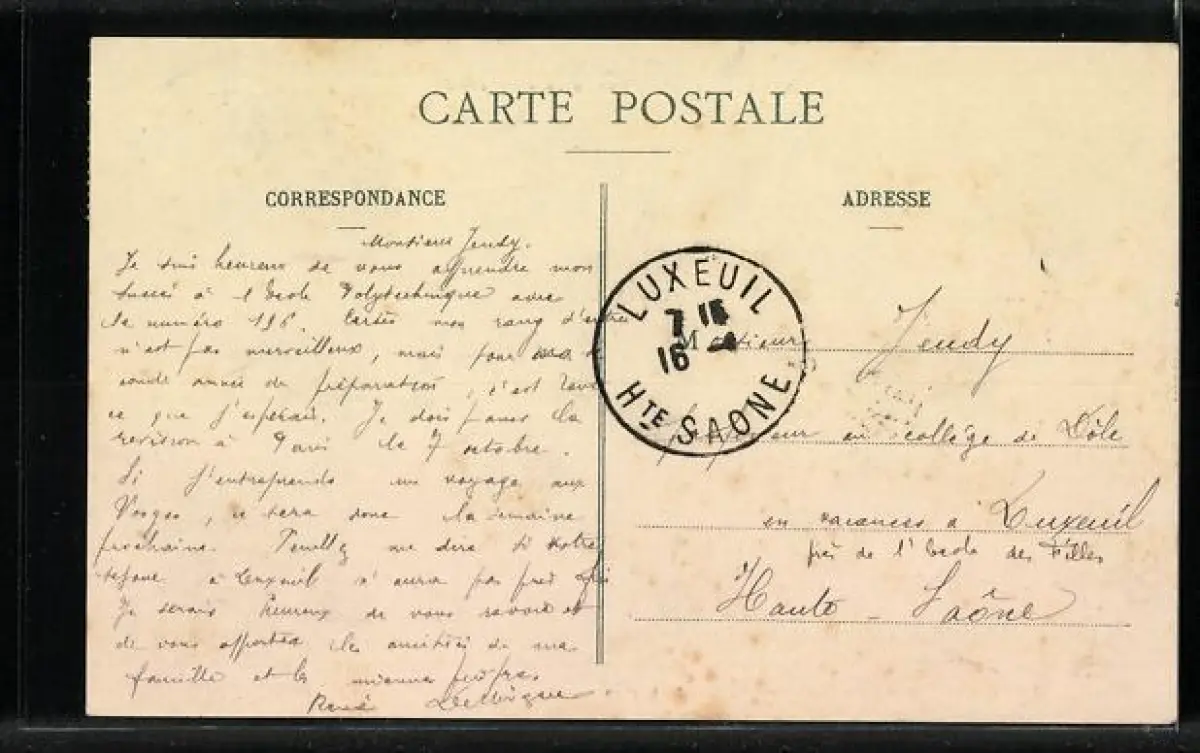 CARTE POSTALE
CORRESPONDANCE
Monsieur Jeudy.
Je suis heureux de vous apprendre mon
succès à l'Ecole Polytechnique avec
le numéro 196. Certes mon rang d'entrée
n'est pas merveilleux, mais pour une
année de préparation, c'est
ce que j'espérais. Je dois passer la
revision à Paris le 7 octobre.
Si j'entreprends un voyage aux
Vosges, ce sera donc la semaine
prochaine. Veuillez me dire si votre
séjour à Luxeuil n'aura pas pris fin
Je serais heureux de vous revoir et
de vous apporter les amitiés de ma
famille et les miennes propres.
René
ADRESSE
LUXEUIL
7 15
16
Hte SAONE
Monsieur Jeudy
professeur au collège de Dôle
en vacances à Luxeuil
près de l'Ecole des Filles
Haute-Saône